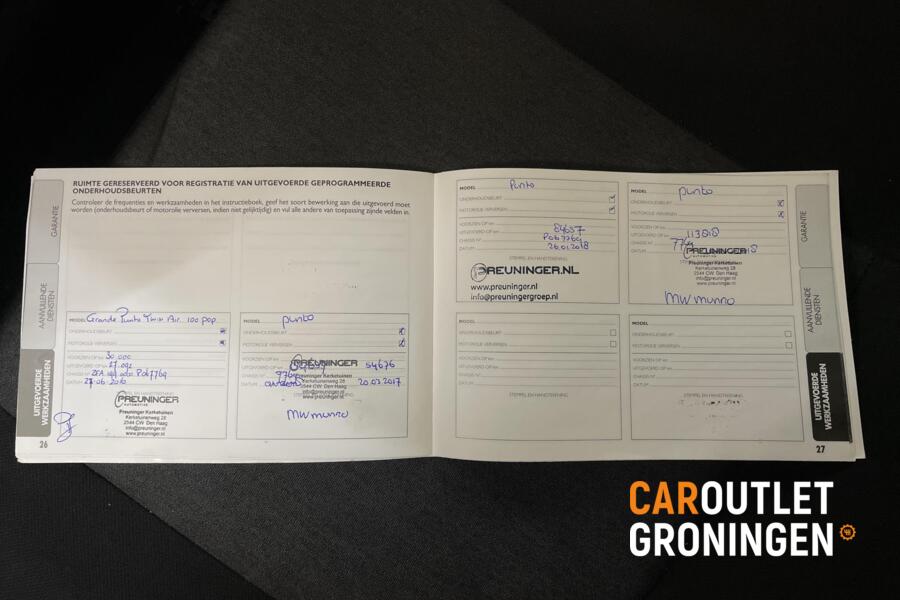 RUIMTE GERESERVEERD VOOR REGISTRATIE VAN UITGEVOERDE GEPROGRAMMEERDE
ONDERHOUDSBEURTEN
Controleer de frequenties en werkzaamheden in het instructieboek, geef het soort bewerking aan die uitgevoerd moet
worden (onderhoudsbeurt of motorolie verversen, indien niet gelijktijdig) en vul alle andere van toepassing zijnde velden in.
GARANTIE
AANVULLENDE
DIENSTEN
UITGEVOERDE
WERKZAAMHEDEN
MODEL Grande Punto Twin Air 100 pop
ONDERHOUDSBEURT
MOTOROLIE VERVERSEN
VOORZIEN OP km 30.000
UITGEVOERD OP km
CHASSIS N°
DATUM
PREUNINGER
AUTOMOTIVE
Preuninger Kerketuinen
Kerketuinenweg 28
2544 CW Den Haag
info@preuninger.nl
www.preuninger.nl
26
MODEL punto
ONDERHOUDSBEURT
MOTOROLIE VERVERSEN
VOORZIEN OP km
UITGEVOERD OP km 54676
CHASSIS N°
DATUM 20.03.2017
PREUNINGER
Preuninger Kerketuinen
Kerketuinenweg 28
2544 CW Den Haag
info@preuninger.nl
www.preuninger.nl
MW munro
MODEL Punto
ONDERHOUDSBEURT
MOTOROLIE VERVERSEN
VOORZIEN OP km
UITGEVOERD OP km 84637
CHASSIS N° P067769
DATUM 26.01.2018
STEMPEL EN HANDTEKENING
PREUNINGER.NL
www.preuninger.nl
info@preuningergroep.nl
MODEL punto
ONDERHOUDSBEURT
MOTOROLIE VERVERSEN
VOORZIEN OP km
UITGEVOERD OP km 113818
CHASSIS N°
DATUM
PREUNINGER
AUTOMOTIVE
Preuninger Kerketuinen
Kerketuinenweg 28
2544 CW Den Haag
info@preuninger.nl
www.preuninger.nl
MW munro
MODEL
ONDERHOUDSBEURT
MOTOROLIE VERVERSEN
VOORZIEN OP km
UITGEVOERD OP km
CHASSIS N°
DATUM
STEMPEL EN HANDTEKENING
MODEL
ONDERHOUDSBEURT
MOTOROLIE VERVERSEN
VOORZIEN OP km
UITGEVOERD OP km
CHASSIS N°
DATUM
STEMPEL EN HANDTEKENING
GARANTIE
AANVULLENDE
DIENSTEN
UITGEVOERDE
WERKZAAMHEDEN
27
CAROUTLET
GRONINGEN